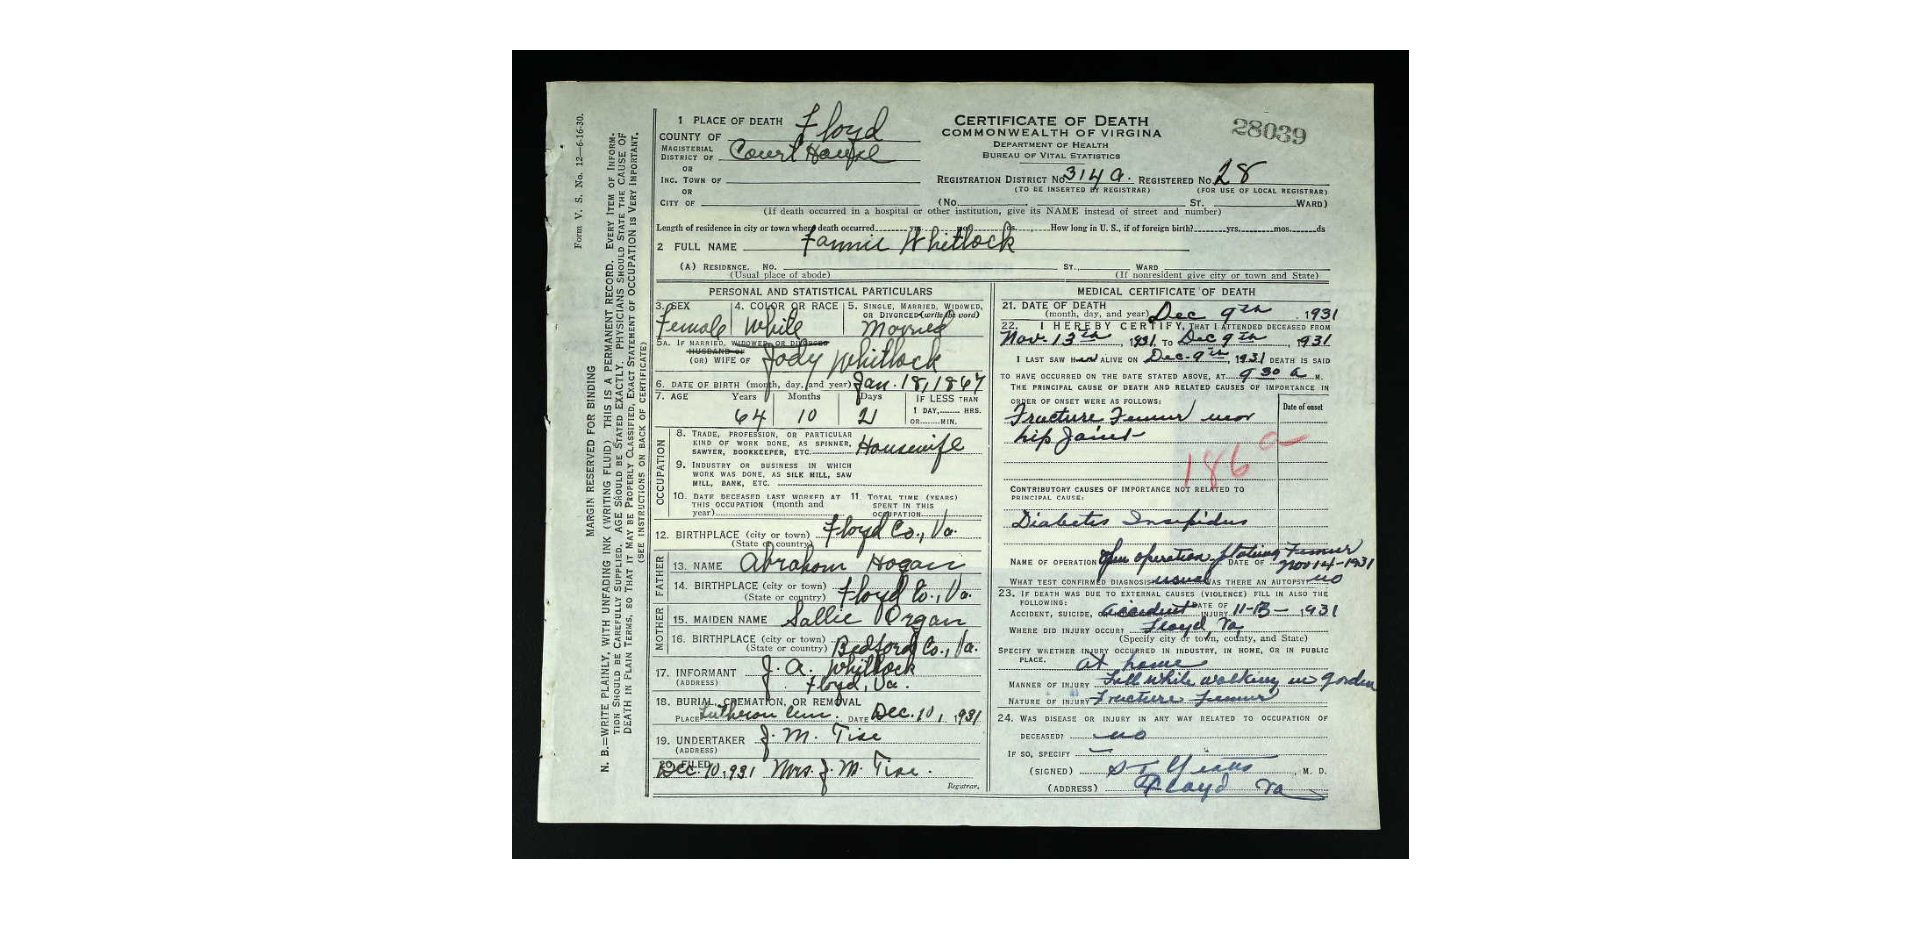 Form V. S. No. 12—6-16-30.
MARGIN RESERVED FOR BINDING
N. B.—WRITE PLAINLY, WITH UNFADING INK (WRITING FLUID) THIS IS A PERMANENT RECORD. EVERY ITEM OF INFORM-
TION SHOULD BE CAREFULLY SUPPLIED. AGE SHOULD BE STATED EXACTLY. PHYSICIANS SHOULD STATE THE CAUSE OF
DEATH IN PLAIN TERMS, SO THAT IT MAY BE PROPERLY CLASSIFIED. EXACT STATEMENT OF OCCUPATION IS VERY IMPORTANT.
(SEE INSTRUCTIONS ON BACK OF CERTIFICATE)
1 PLACE OF DEATH Floyd
COUNTY OF
MAGISTERIAL DISTRICT OF Court House
OR
INC. TOWN OF
OR
CITY OF
CERTIFICATE OF DEATH
COMMONWEALTH OF VIRGINA
DEPARTMENT OF HEALTH
BUREAU OF VITAL STATISTICS
28039
REGISTRATION DISTRICT No. 314 a. REGISTERED No. 28
(TO BE INSERTED BY REGISTRAR) (FOR USE OF LOCAL REGISTRAR)
(No. ST. WARD)
(If death occurred in a hospital or other institution, give its NAME instead of street and number)
Length of residence in city or town where death occurred yrs. mos. ds. How long in U. S., if of foreign birth? yrs. mos. ds
2 FULL NAME Fannie Whitlock
(A) RESIDENCE. No. ST., WARD
(Usual place of abode) (If nonresident give city or town and State)
PERSONAL AND STATISTICAL PARTICULARS
3. SEX 4. COLOR OR RACE 5. SINGLE, MARRIED, WIDOWED,
OR DIVORCED (write the word)
Female White Married
5A. IF MARRIED, WIDOWED OR DIVORCED
HUSBAND OF
(OR) WIFE OF Jody Whitlock
6. DATE OF BIRTH (month, day, and year) Jan. 18, 1867
7. AGE Years Months Days IF LESS THAN
1 DAY, HRS.
OR MIN.
64 10 21
OCCUPATION
8. TRADE, PROFESSION, OR PARTICULAR
KIND OF WORK DONE, AS SPINNER,
SAWYER, BOOKKEEPER, ETC. Housewife
9. INDUSTRY OR BUSINESS IN WHICH
WORK WAS DONE, AS SILK MILL, SAW
MILL, BANK, ETC.
10. DATE DECEASED LAST WORKED AT THIS OCCUPATION (month and year)
11 TOTAL TIME (YEARS) SPENT IN THIS OCCUPATION
12. BIRTHPLACE (city or town) Floyd Co., Va.
(State or country)
FATHER
13. NAME Abraham Hogan
14. BIRTHPLACE (city or town) Floyd Co., Va.
(State or country)
MOTHER
15. MAIDEN NAME Sallie Organ
16. BIRTHPLACE (city or town) Bedford Co., Va.
(State or country)
17. INFORMANT J. A. Whitlock
(ADDRESS) Floyd, Va.
18. BURIAL, CREMATION, OR REMOVAL
PLACE Lutheran Cem. DATE Dec. 10, 1931
19. UNDERTAKER J. M. Tise
(ADDRESS)
20. FILED Dec. 10, 1931 Mrs. J. M. Tise.
Registrar.
MEDICAL CERTIFICATE OF DEATH
21. DATE OF DEATH
(month, day, and year) Dec 9th, 1931
22. I HEREBY CERTIFY, THAT I ATTENDED DECEASED FROM
Nov. 13th, 1931, TO Dec 9th, 1931
I LAST SAW her ALIVE ON Dec. 9th, 1931 DEATH IS SAID
TO HAVE OCCURRED ON THE DATE STATED ABOVE, AT 9 30 a M.
THE PRINCIPAL CAUSE OF DEATH AND RELATED CAUSES OF IMPORTANCE IN
ORDER OF ONSET WERE AS FOLLOWS: Date of onset
Fracture Femur near
hip Joint
186 a
CONTRIBUTORY CAUSES OF IMPORTANCE NOT RELATED TO
PRINCIPAL CAUSE:
Diabetis Insipidus
NAME OF OPERATION open operation plating Femur DATE OF Nov 14-1931
WHAT TEST CONFIRMED DIAGNOSIS usual WAS THERE AN AUTOPSY no
23. IF DEATH WAS DUE TO EXTERNAL CAUSES (VIOLENCE) FILL IN ALSO THE
FOLLOWING:
ACCIDENT, SUICIDE, OR accident DATE OF INJURY 11-13-, 1931
WHERE DID INJURY OCCUR? Floyd, Va,
(Specify city or town, county, and State)
SPECIFY WHETHER INJURY OCCURRED IN INDUSTRY, IN HOME, OR IN PUBLIC
PLACE. at home
MANNER OF INJURY Fall while walking in garden
NATURE OF INJURY Fracture Femur
24. WAS DISEASE OR INJURY IN ANY WAY RELATED TO OCCUPATION OF
DECEASED? no
IF SO, SPECIFY —
(SIGNED) , M. D.
(ADDRESS) Floyd Va